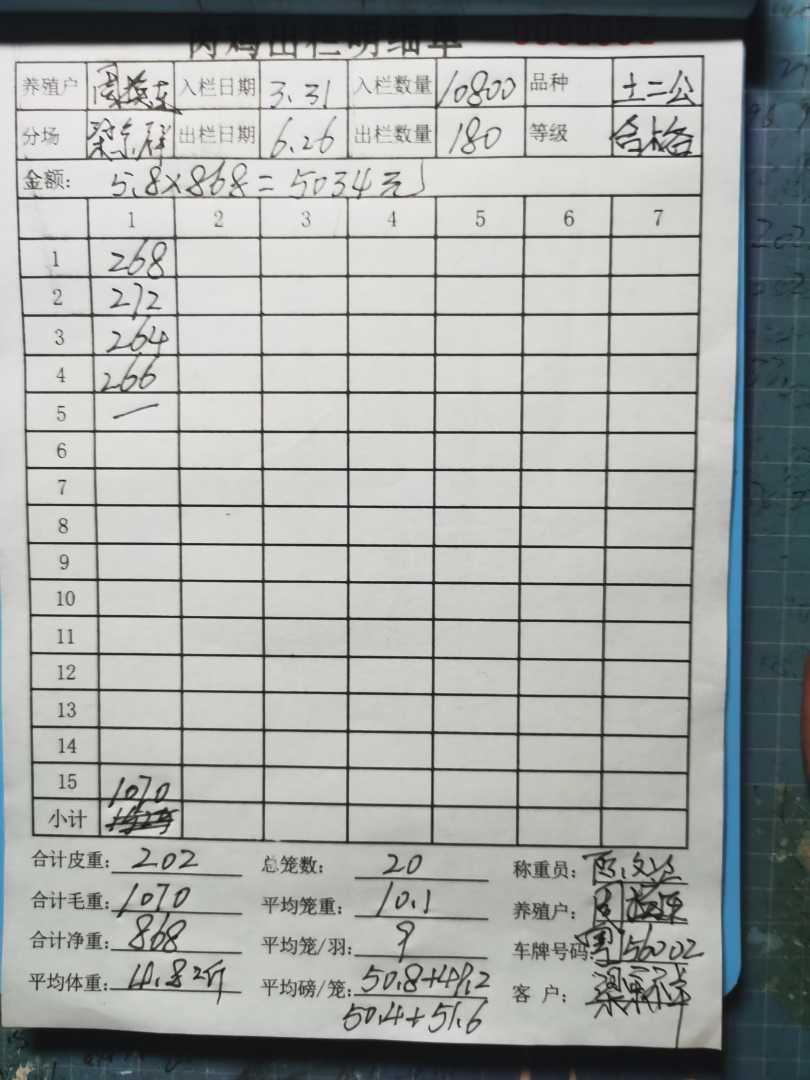 肉鸡出栏明细单
养殖户 入栏日期 3.31 入栏数量 10800 品种 土二公
分场 出栏日期 6.26 出栏数量 180 等级 合格
金额: 5.8×868=5034元
1 2 3 4 5 6 7
1 268
2 272
3 264
4 266
5 —
6
7
8
9
10
11
12
13
14
15 1070
小计
合计皮重: 202 总笼数: 20 称重员:
合计毛重: 1070 平均笼重: 10.1 养殖户:
合计净重: 868 平均笼/羽: 9 车牌号码: 56002
平均体重: 4.82斤 平均磅/笼: 50.8+49.2 客 户:
50.4+51.6